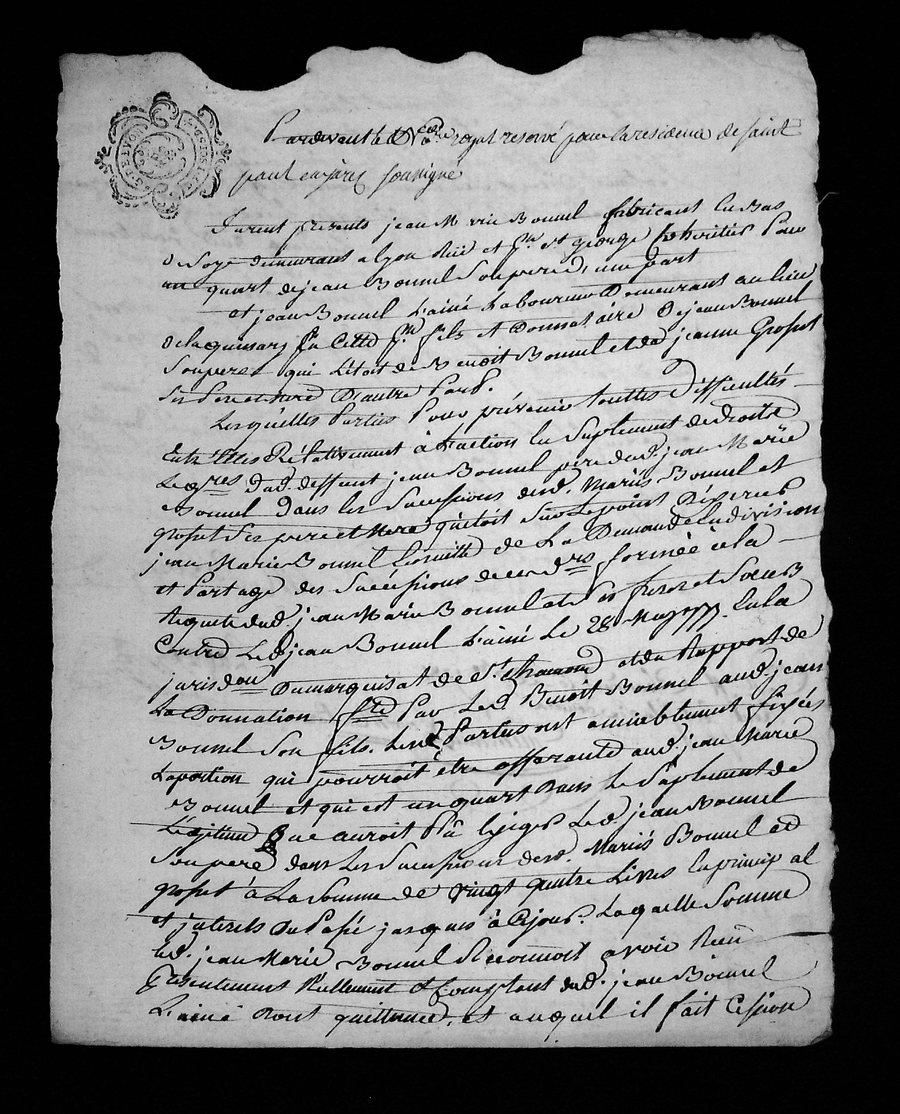 Pardevant le No.re royal reservé pour la residence de saint
paul en jarès soussigné
furent presents jean Marie Bonnel fabricant en Bas
de soye demeurant a Lyon Rüe et p.sse st george heritier Pour
un quart de jean Bonnel Son pere, d'une part
et jean Bonnel L'ainé Laboureur Demeurant au lieu
de la en Cette p.sse fils et Donnataire De jean Bonnel
Son pere qui L'étoit de Benoit Bonnel et de jeanne Grosset
Ses Pere et Mere D'autre Part.
Lesquelles Parties Pour prévenir touttes Difficultés
Entr'Elles Rélativement à L'action en Suplement de droits
Legit.res dud. deffunt jean Bonnel pere dud. jean Marie
Bonnel Dans les Successions desd. Mariés Bonnel et
grosset Ses pere et Mere qu'étoit Sur le point D'éxercer
jean Marie Bonnel Ensuitte de La Demande En division
et Partage des Successions de ces d.rs formée à la
Requete dud. jean Marie Bonnel et de Ses freres et Soeurs
Contre Led. jean Bonnel L'ainé Le 28 May En la
jurisd.on Du marquisat de St. Chamond et du Rapport de
La Donnation f.te Par Led. Benoit Bonnel aud. jean
Bonnel Son fils. Lesd. Parties ont amiablement fixées
La portion qui pourroit être afferante aud. jean Marie
Bonnel et qui est un quart Dans le Suplement de
Légitime Que auroit Pû Exiger Led. jean Bonnel
Son pere dans Les Successions desd. Mariés Bonnel et
grosset à La Somme de vingt quatre Livres En principal
et jnterets du Passé jusques à Cejour. Laquelle Somme
led. jean Marie Bonnel Reconnoit avoir Reçu
Présentement Réellement et Comptant dud. jean Bonnel
L'ainé Dont quittance, et auquel il fait Cession